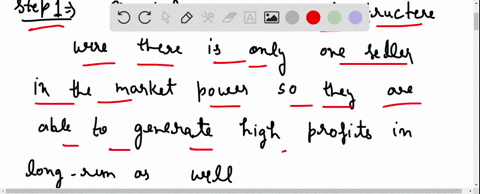 Step 1 :⇒ structere
were there is only one seller
in the market power so they are
able to generate high profits in
long-run as well